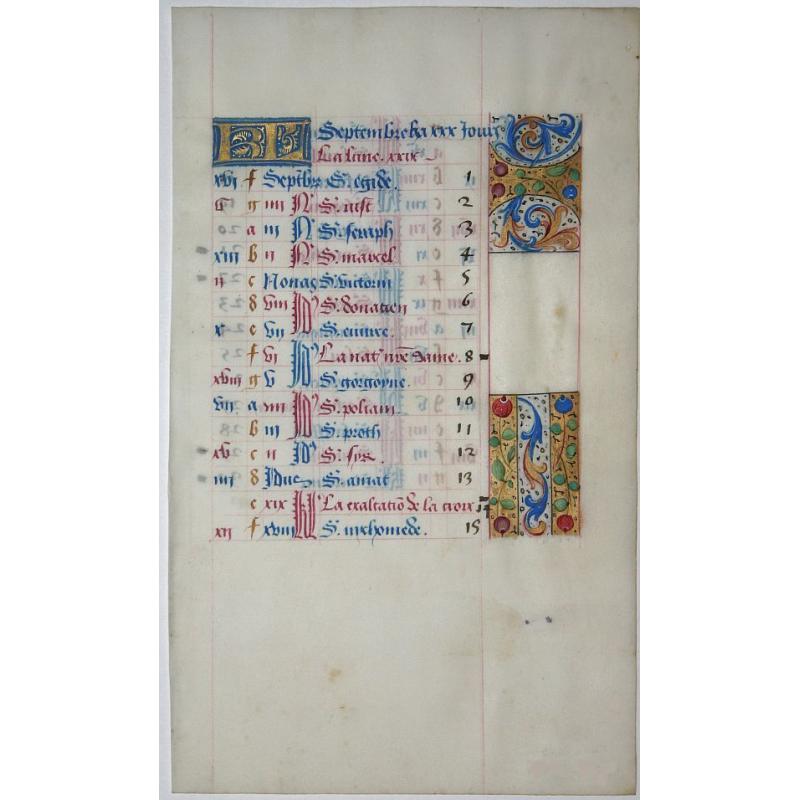 KL Septembre ha xxx Jours
La lune. xxix
xvi f Septbr̃ S. egide. 1
v g iiii N S. iust 2
a iii N S. seraph 3
xiii b ii N S. marcel 4
ii c Nonas S. victorin 5
d viii Id S. donatien 6
x e vii Id S. euurce. 7
f vi Id La nat' nr̃e Dame. 8
xviii g v Id S. gorgoyne. 9
vii a iiii Id S. poliam 10
b iii Id S. proth 11
xv c ii Id S. syr. 12
iiii d Idus S. amat 13
e xix kl La exaltatiõ de la croix 14
xii f xviii kl S. nichomede. 15